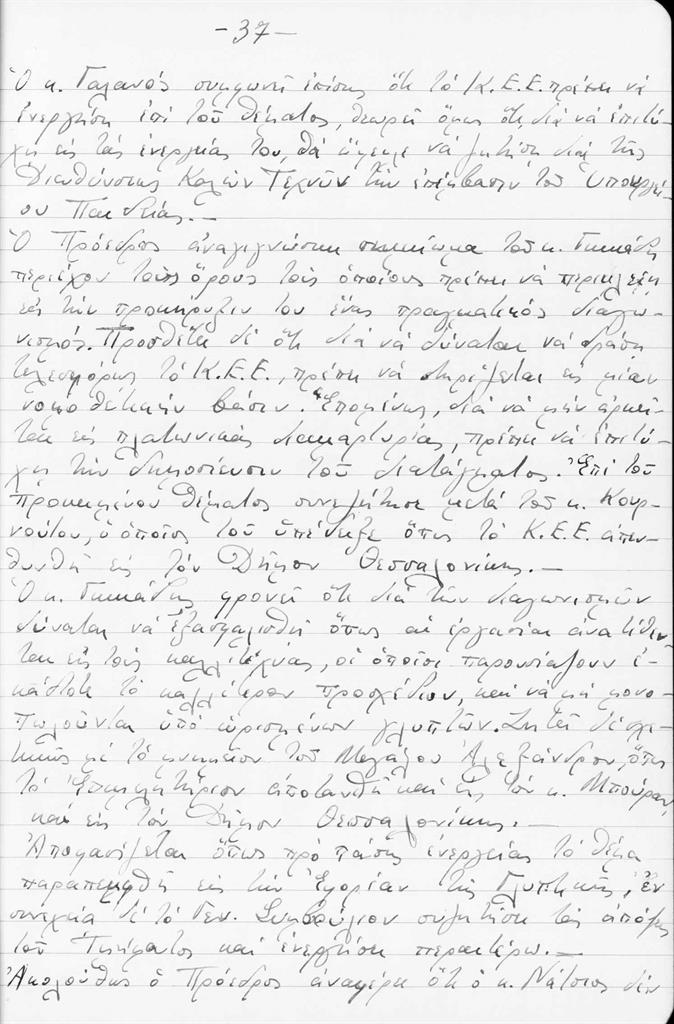 -37-
Ὁ κ. Γαλανός συμφωνεῖ ἐπίσης ὅτι τό Κ.Ε.Ε. πρέπει νά
ἐνεργήση ἐπί τοῦ θέματος, θεωρεῖ ὅμως ὅτι, διά νά ἐπιτύ-
χη εἰς τάς ἐνεργείας του, θά ὤφειλε νά ζητήση διά τῆς
Διευθύνσεως Καλῶν Τεχνῶν τήν ἐπέμβασιν τοῦ Ὑπουργεί-
ου Παιδείας.—
Ὁ Πρόεδρος ἀναγιγνώσκει σημείωμα τοῦ κ.
περιέχον τούς ὅρους τούς ὁποίους πρέπει νά περικλείη
εἰς τήν προκήρυξιν του ἕνας πραγματικός διαγω-
νισμός. Προσθέτει δέ ὅτι διά νά δύναται νά δράση
τελεσφόρως τό Κ.Ε.Ε., πρέπει νά στηρίζεται εἰς μίαν
νομοθετικήν βάσιν. Ἑπομένως, διά νά μήν ἀρκεῖ-
ται εἰς πλατωνικάς διαμαρτυρίας, πρέπει νά ἐπιτύ-
χη τήν δημοσίευσιν τοῦ διατάγματος. Ἐπί τοῦ
προκειμένου θέματος συνεζήτησε μετά τοῦ κ. Κουρ-
νούτου, ὁ ὁποῖος τοῦ ὑπέδειξε ὅπως τό Κ.Ε.Ε. ἀπευ-
θυνθῆ εἰς τόν Δῆμον Θεσσαλονίκης.—
Ὁ κ. φρονεῖ ὅτι διά τῶν διαγωνισμῶν
δύναται νά ἐξασφαλισθῆ ὅπως αἱ ἐργασίαι ἀνατίθεν-
ται εἰς τούς καλλιτέχνας, οἱ ὁποῖοι παρουσιάζουν ἑ-
κάστοτε τό καλλίτερον προσχέδιον, καί νά μή μονο-
πωλοῦνται ὑπό ὡρισμένων γλυπτῶν. Ζητεῖ δέ σχε-
τικῶς μέ τό μνημεῖον τοῦ Μεγάλου Ἀλεξάνδρου, ὅπως
τό Ἐπιμελητήριον ἀποτανθῆ καί εἰς τόν κ.
καί εἰς τόν Δῆμον Θεσσαλονίκης.—
Ἀποφασίζεται ὅπως πρό πάσης ἐνεργείας τό θέμα
παραπεμφθῆ εἰς τήν Ἐφορίαν τῆς Γλυπτικῆς, ἐν
συνεχεία δέ τό Γεν. Συμβούλιον συζητήση τάς ἀπόψεις
τοῦ Τμήματος καί ἐνεργήση περαιτέρω.—
Ἀκολούθως ὁ Πρόεδρος ἀναφέρει ὅτι ὁ κ. Νάτσιος δέν